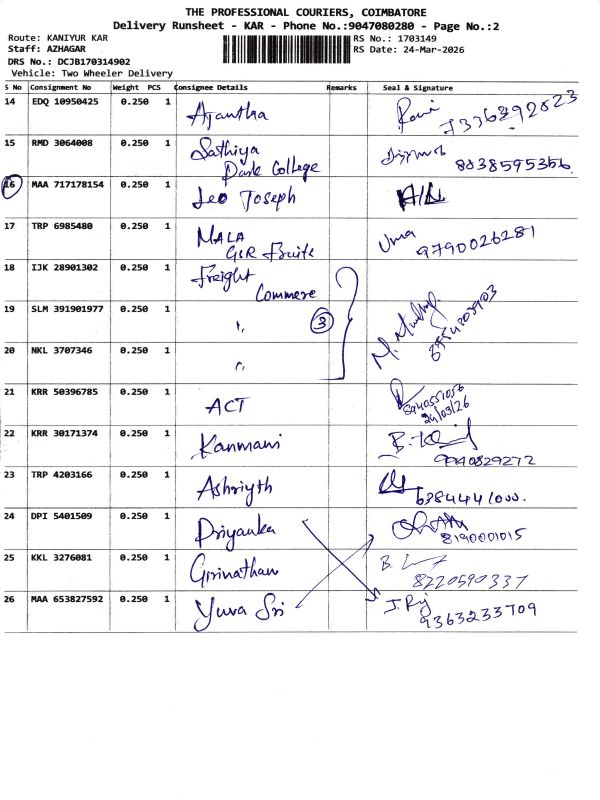 THE PROFESSIONAL COURIERS, COIMBATORE
Delivery Runsheet - KAR - Phone No.:9047080280 - Page No.:2
Route: KANIYUR KAR
RS No.: 1703149
Staff: AZHAGAR
RS Date: 24-Mar-2026
DRS No.: DCJB170314902
Vehicle: Two Wheeler Delivery
S No Consignment No Weight PCS Consignee Details Remarks Seal & Signature
14 EDQ 10950425 0.250 1 Ajantha
15 RMD 3064008 0.250 1 Sathiya
Park College 8838595366
16 MAA 717178154 0.250 1 Leo Joseph
17 TRP 6985480 0.250 1 MALA Uma
GSR Fruits 9790026281
18 IJK 28901302 0.250 1 Freight
Commerce
19 SLM 391901977 0.250 1 " 3
20 NKL 3707346 0.250 1 "
21 KRR 50396785 0.250 1 ACT
24/03/26
22 KRR 30171374 0.250 1 Kanmani
9940829272
23 TRP 4203166 0.250 1 Ashriyth
6384441000.
24 DPI 5401509 0.250 1 Priyanka
8190001015
25 KKL 3276081 0.250 1 Girinathan
8220590337
26 MAA 653827592 0.250 1 Yuva Sri
9363233709